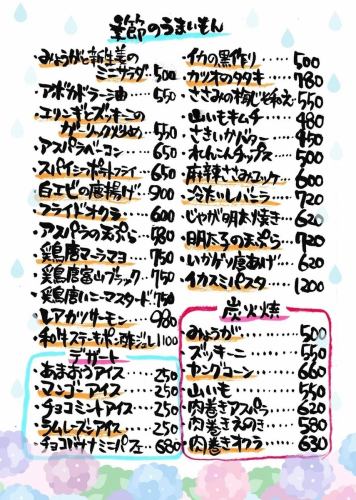 季節のうまいもん
・みょうがと新生姜の
ミニサラダ…500
・アボカドラー油……550
・エリンギとズッキーニの
ガーリック炒め…550
・アスパラベーコン…650
・スパイシーポテトフライ…650
・白エビの唐揚げ…900
・フライドオクラ……600
・アスパラの天ぷら…780
・鶏唐マヨラマヨ…750
・鶏唐富山ブラック…750
・鶏唐ハニーマスタード…750
・レアガツサーモン…980
・和牛ステーキポン酢ジュレ1100
デザート
・あまおうアイス…250
・マンゴーアイス…250
・チョコミントアイス…250
・ラムレーズンアイス…250
・チョコバナナミニパフェ…680
・イカの黒作り……500
・カツオのタタキ…780
・ささみの梅しそ和え…550
・山いもキムチ……480
・さきいかドクー…450
・れんこんチップス…500
・麻辣ささみユッケ…600
・冷だしバニラ…720
・じゃが明太焼き…620
・明太子の天ぷら…720
・いかげそ唐あげ…620
・イカスミパスタ…1200
炭火焼
・みょうが……500
・ズッキーニ……550
・ヤングコーン……660
・山いも……550
・肉巻きアスパラ…620
・肉巻きえのき…580
・肉巻きオクラ…630